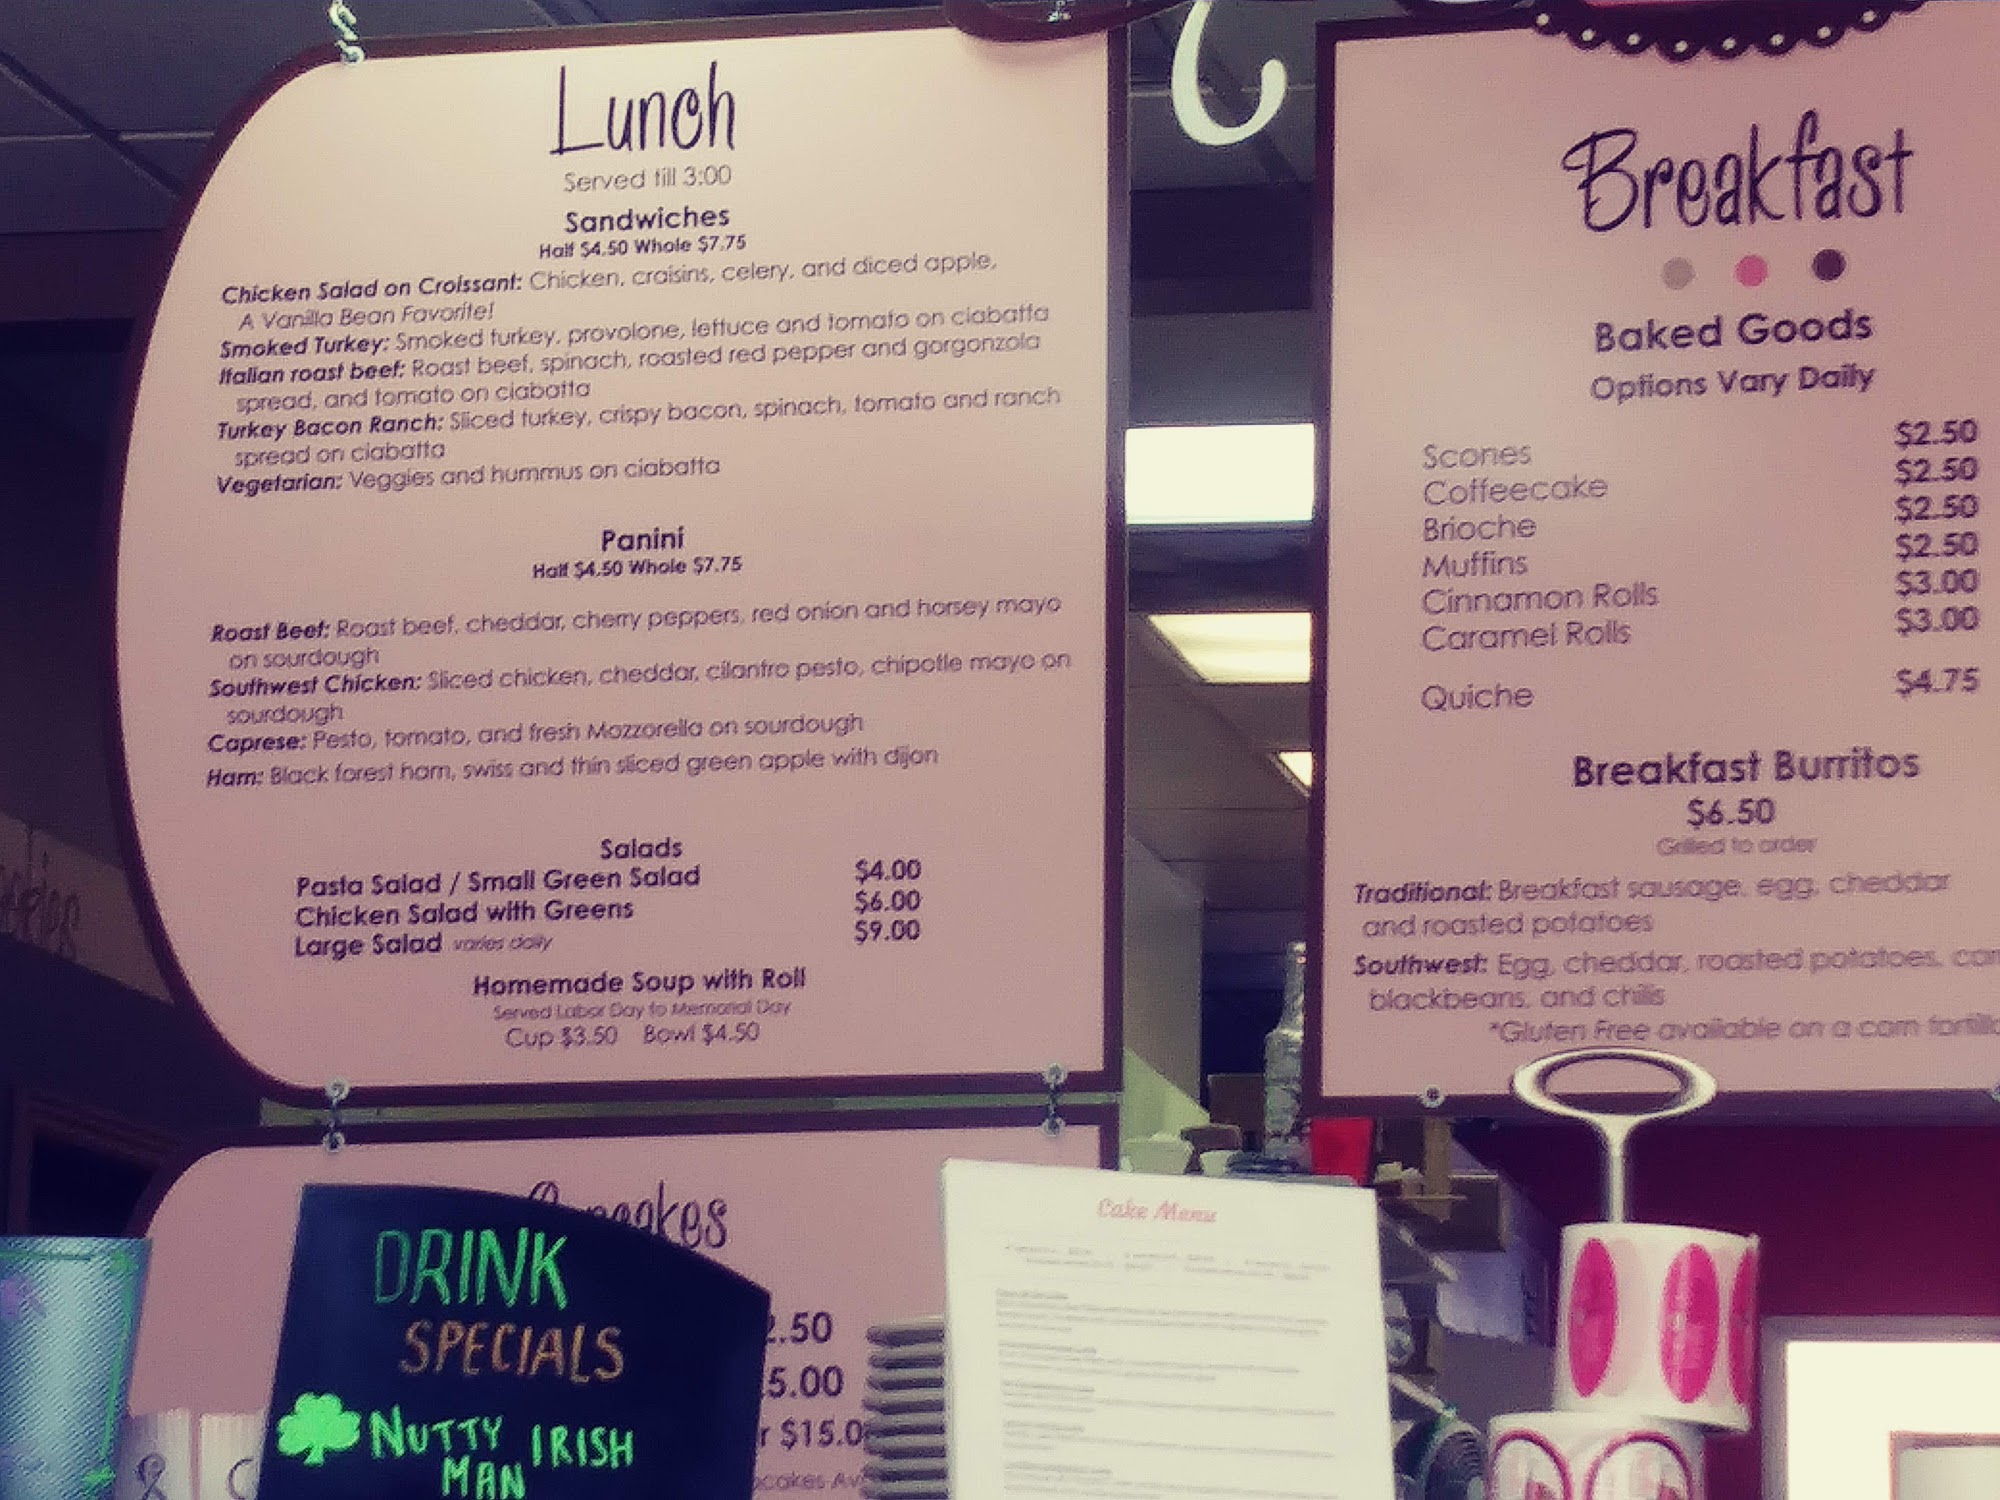 Lunch
Served till 3:00
Sandwiches
Half $4.50 Whole $7.75
Chicken Salad on Croissant: Chicken, craisins, celery, and diced apple,
A Vanilla Bean Favorite!
Smoked Turkey: Smoked turkey, provolone, lettuce and tomato on ciabatta
Italian roast beef: Roast beef, spinach, roasted red pepper and gorgonzola
spread, and tomato on ciabatta
Turkey Bacon Ranch: Sliced turkey, crispy bacon, spinach, tomato and ranch
spread on ciabatta
Vegetarian: Veggies and hummus on ciabatta
Panini
Half $4.50 Whole $7.75
Roast Beef: Roast beef, cheddar, cherry peppers, red onion and horsey mayo
on sourdough
Southwest Chicken: Sliced chicken, cheddar, cilantro pesto, chipotle mayo on
sourdough
Caprese: Pesto, tomato, and fresh Mozzorella on sourdough
Ham: Black forest ham, swiss and thin sliced green apple with dijon
Salads
Pasta Salad / Small Green Salad $4.00
Chicken Salad with Greens $6.00
Large Salad varies daily $9.00
Homemade Soup with Roll
Served Labor Day to Memorial Day
Cup $3.50 Bowl $4.50
Breakfast
Baked Goods
Options Vary Daily
Scones $2.50
Coffeecake $2.50
Brioche $2.50
Muffins $2.50
Cinnamon Rolls $3.00
Caramel Rolls $3.00
Quiche $4.75
Breakfast Burritos
$6.50
Grilled to order
Traditional: Breakfast sausage, egg, cheddar
and roasted potatoes
Southwest: Egg, cheddar, roasted potatoes,
blackbeans, and chilis
*Gluten Free available on a corn
DRINK
SPECIALS
NUTTY IRISH
MAN
2.50
5.00
$15.0
Cake Menu